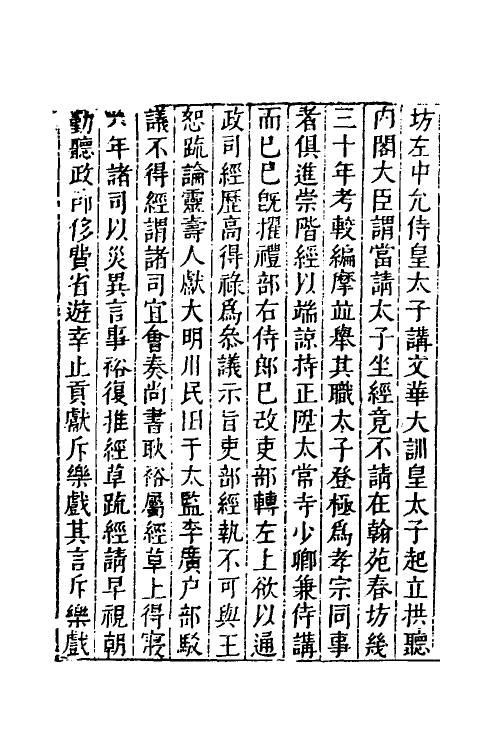 坊左中允侍皇太子講文華大訓皇太子起立拱聽
内閣大臣謂當請太子坐經竟不請在翰苑春坊幾
三十年考較編摩並舉其職太子登極爲孝宗同事
者俱進崇階經以端諒持正陞太常寺少卿兼侍講
而已已旣擢禮部右侍郎已改吏部轉左上欲以通
政司經歷高得祿爲叅議示旨吏部經執不可與王
恕疏論靈壽人獻大明川民田于太監李廣户部駁
議不得經謂諸司宜會奏尚書耿裕屬經草上得寢
年諸司以災異言事裕復推經草疏經請早視朝
勤聽政節修費省遊幸止貢獻斥樂戲其言斥樂戲